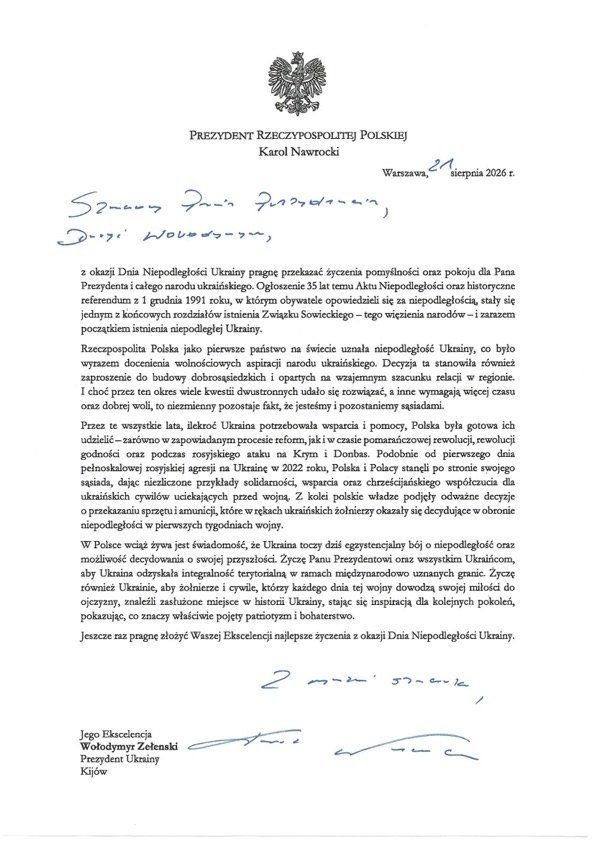 PREZYDENT RZECZYPOSPOLITEJ POLSKIEJ
Karol Nawrocki
Warszawa, 21 sierpnia 2026 r.
Szanowny Panie Prezydencie,
Drogi Wołodymyrze,
z okazji Dnia Niepodległości Ukrainy pragnę przekazać życzenia pomyślności oraz pokoju dla Pana
Prezydenta i całego narodu ukraińskiego. Ogłoszenie 35 lat temu Aktu Niepodległości oraz historyczne
referendum z 1 grudnia 1991 roku, w którym obywatele opowiedzieli się za niepodległością, stały się
jednym z końcowych rozdziałów istnienia Związku Sowieckiego – tego więzienia narodów – i zarazem
początkiem istnienia niepodległej Ukrainy.
Rzeczpospolita Polska jako pierwsze państwo na świecie uznała niepodległość Ukrainy, co było
wyrazem docenienia wolnościowych aspiracji narodu ukraińskiego. Decyzja ta stanowiła również
zaproszenie do budowy dobrosąsiedzkich i opartych na wzajemnym szacunku relacji w regionie.
I choć przez ten okres wiele kwestii dwustronnych udało się rozwiązać, a inne wymagają więcej czasu
oraz dobrej woli, to niezmienny pozostaje fakt, że jesteśmy i pozostaniemy sąsiadami.
Przez te wszystkie lata, ilekroć Ukraina potrzebowała wsparcia i pomocy, Polska była gotowa ich
udzielić – zarówno w zapowiadanym procesie reform, jak i w czasie pomarańczowej rewolucji, rewolucji
godności oraz podczas rosyjskiego ataku na Krym i Donbas. Podobnie od pierwszego dnia
pełnoskalowej rosyjskiej agresji na Ukrainę w 2022 roku, Polska i Polacy stanęli po stronie swojego
sąsiada, dając niezliczone przykłady solidarności, wsparcia oraz chrześcijańskiego współczucia dla
ukraińskich cywilów uciekających przed wojną. Z kolei polskie władze podjęły odważne decyzje
o przekazaniu sprzętu i amunicji, które w rękach ukraińskich żołnierzy okazały się decydujące w obronie
niepodległości w pierwszych tygodniach wojny.
W Polsce wciąż żywa jest świadomość, że Ukraina toczy dziś egzystencjalny bój o niepodległość oraz
możliwość decydowania o swojej przyszłości. Życzę Panu Prezydentowi oraz wszystkim Ukraińcom,
aby Ukraina odzyskała integralność terytorialną w ramach międzynarodowo uznanych granic. Życzę
również Ukrainie, aby żołnierze i cywile, którzy każdego dnia tej wojny dowodzą swojej miłości do
ojczyzny, znaleźli zasłużone miejsce w historii Ukrainy, stając się inspiracją dla kolejnych pokoleń,
pokazując, co znaczy właściwie pojęty patriotyzm i bohaterstwo.
Jeszcze raz pragnę złożyć Waszej Ekscelencji najlepsze życzenia z okazji Dnia Niepodległości Ukrainy.
Z wyrazami szacunku,
Jego Ekscelencja
Wołodymyr Zełenski
Prezydent Ukrainy
Kijów